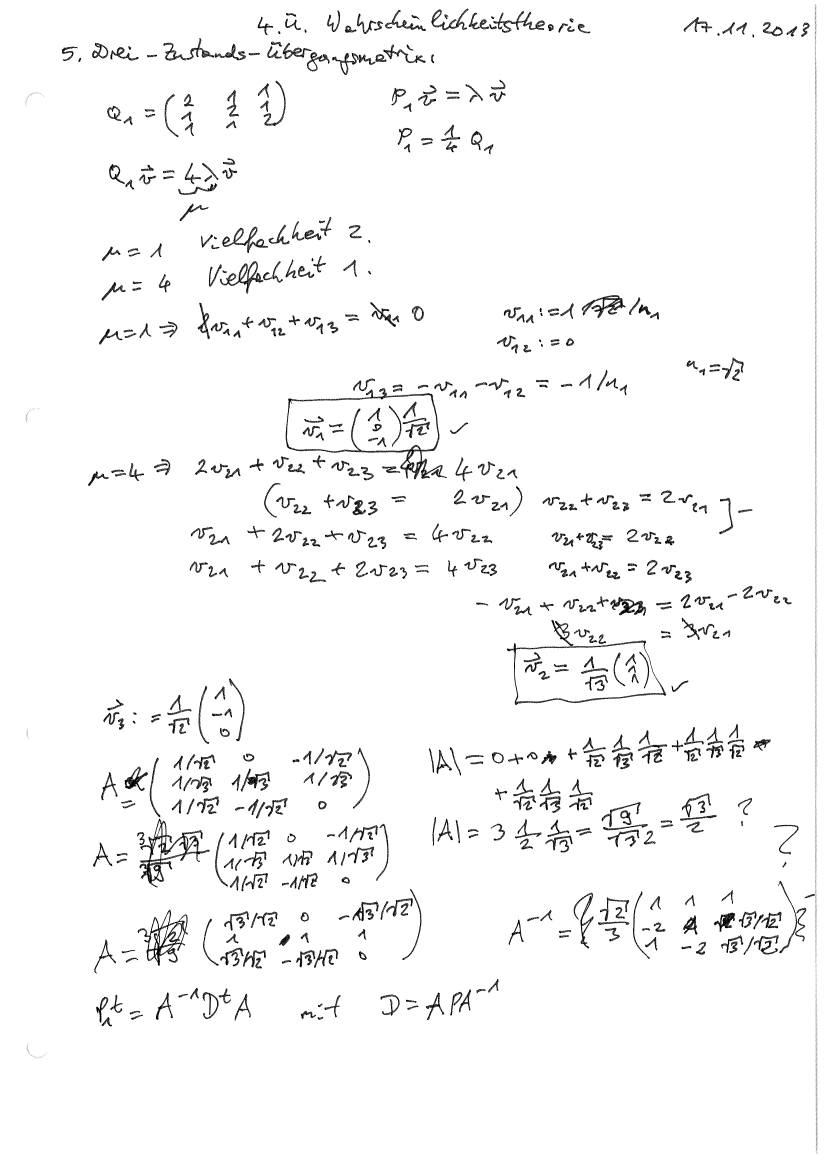 4. Ü. Wahrscheinlichkeitstheorie 17.11.2013
5. Drei-Zustands-Übergangsmatrix:
Q₁ = (2 1 1; 1 2 1; 1 1 2) P₁ v⃗ = λ v⃗
P₁ = 1/4 Q₁
Q₁ v⃗ = 4λ v⃗
μ
μ = 1 Vielfachheit 2.
μ = 4 Vielfachheit 1.
μ = 1 ⇒ v₁₁ + v₁₂ + v₁₃ = 0 v₁₁ := 1 /n₁
v₁₂ := 0
n₁ = √2
v₁₃ = -v₁₁ - v₁₂ = -1/n₁
v⃗₁ = (1; 0; -1) 1/√2 ✓
μ = 4 ⇒ 2v₂₁ + v₂₂ + v₂₃ = 4v₂₁
(v₂₂ + v₂₃ = 2v₂₁) v₂₂ + v₂₃ = 2v₂₁ ] -
v₂₁ + 2v₂₂ + v₂₃ = 4v₂₂ v₂₁ + v₂₃ = 2v₂₂
v₂₁ + v₂₂ + 2v₂₃ = 4v₂₃ v₂₁ + v₂₂ = 2v₂₃
- v₂₁ + v₂₂ = 2v₂₁ - 2v₂₂
3v₂₂ = 3v₂₁
v⃗₂ = 1/√3 (1; 1; 1) ✓
v⃗₃ := 1/√2 (1; -1; 0)
A = (1/√2 0 -1/√2; 1/√3 1/√3 1/√3; 1/√2 -1/√2 0) |A| = 0 + 0 + 1/√2 1/√3 1/√2 + 1/√2 1/√3 1/√2
+ 1/√2 1/√3 1/√2
A = (1/√2 0 -1/√2; 1/√3 1/√3 1/√3; 1/√2 -1/√2 0) |A| = 3 1/2 1/√3 = √9/√3 2 = √3/2 ? ?
A = (√3/√2 0 -√3/√2; 1 1 1; √3/√2 -√3/√2 0) A⁻¹ = { √2/3 (1 1 1; -2 √3/√2; 1 -2 √3/√2) }
P₁ᵗ = A⁻¹ Dᵗ A mit D = A P A⁻¹